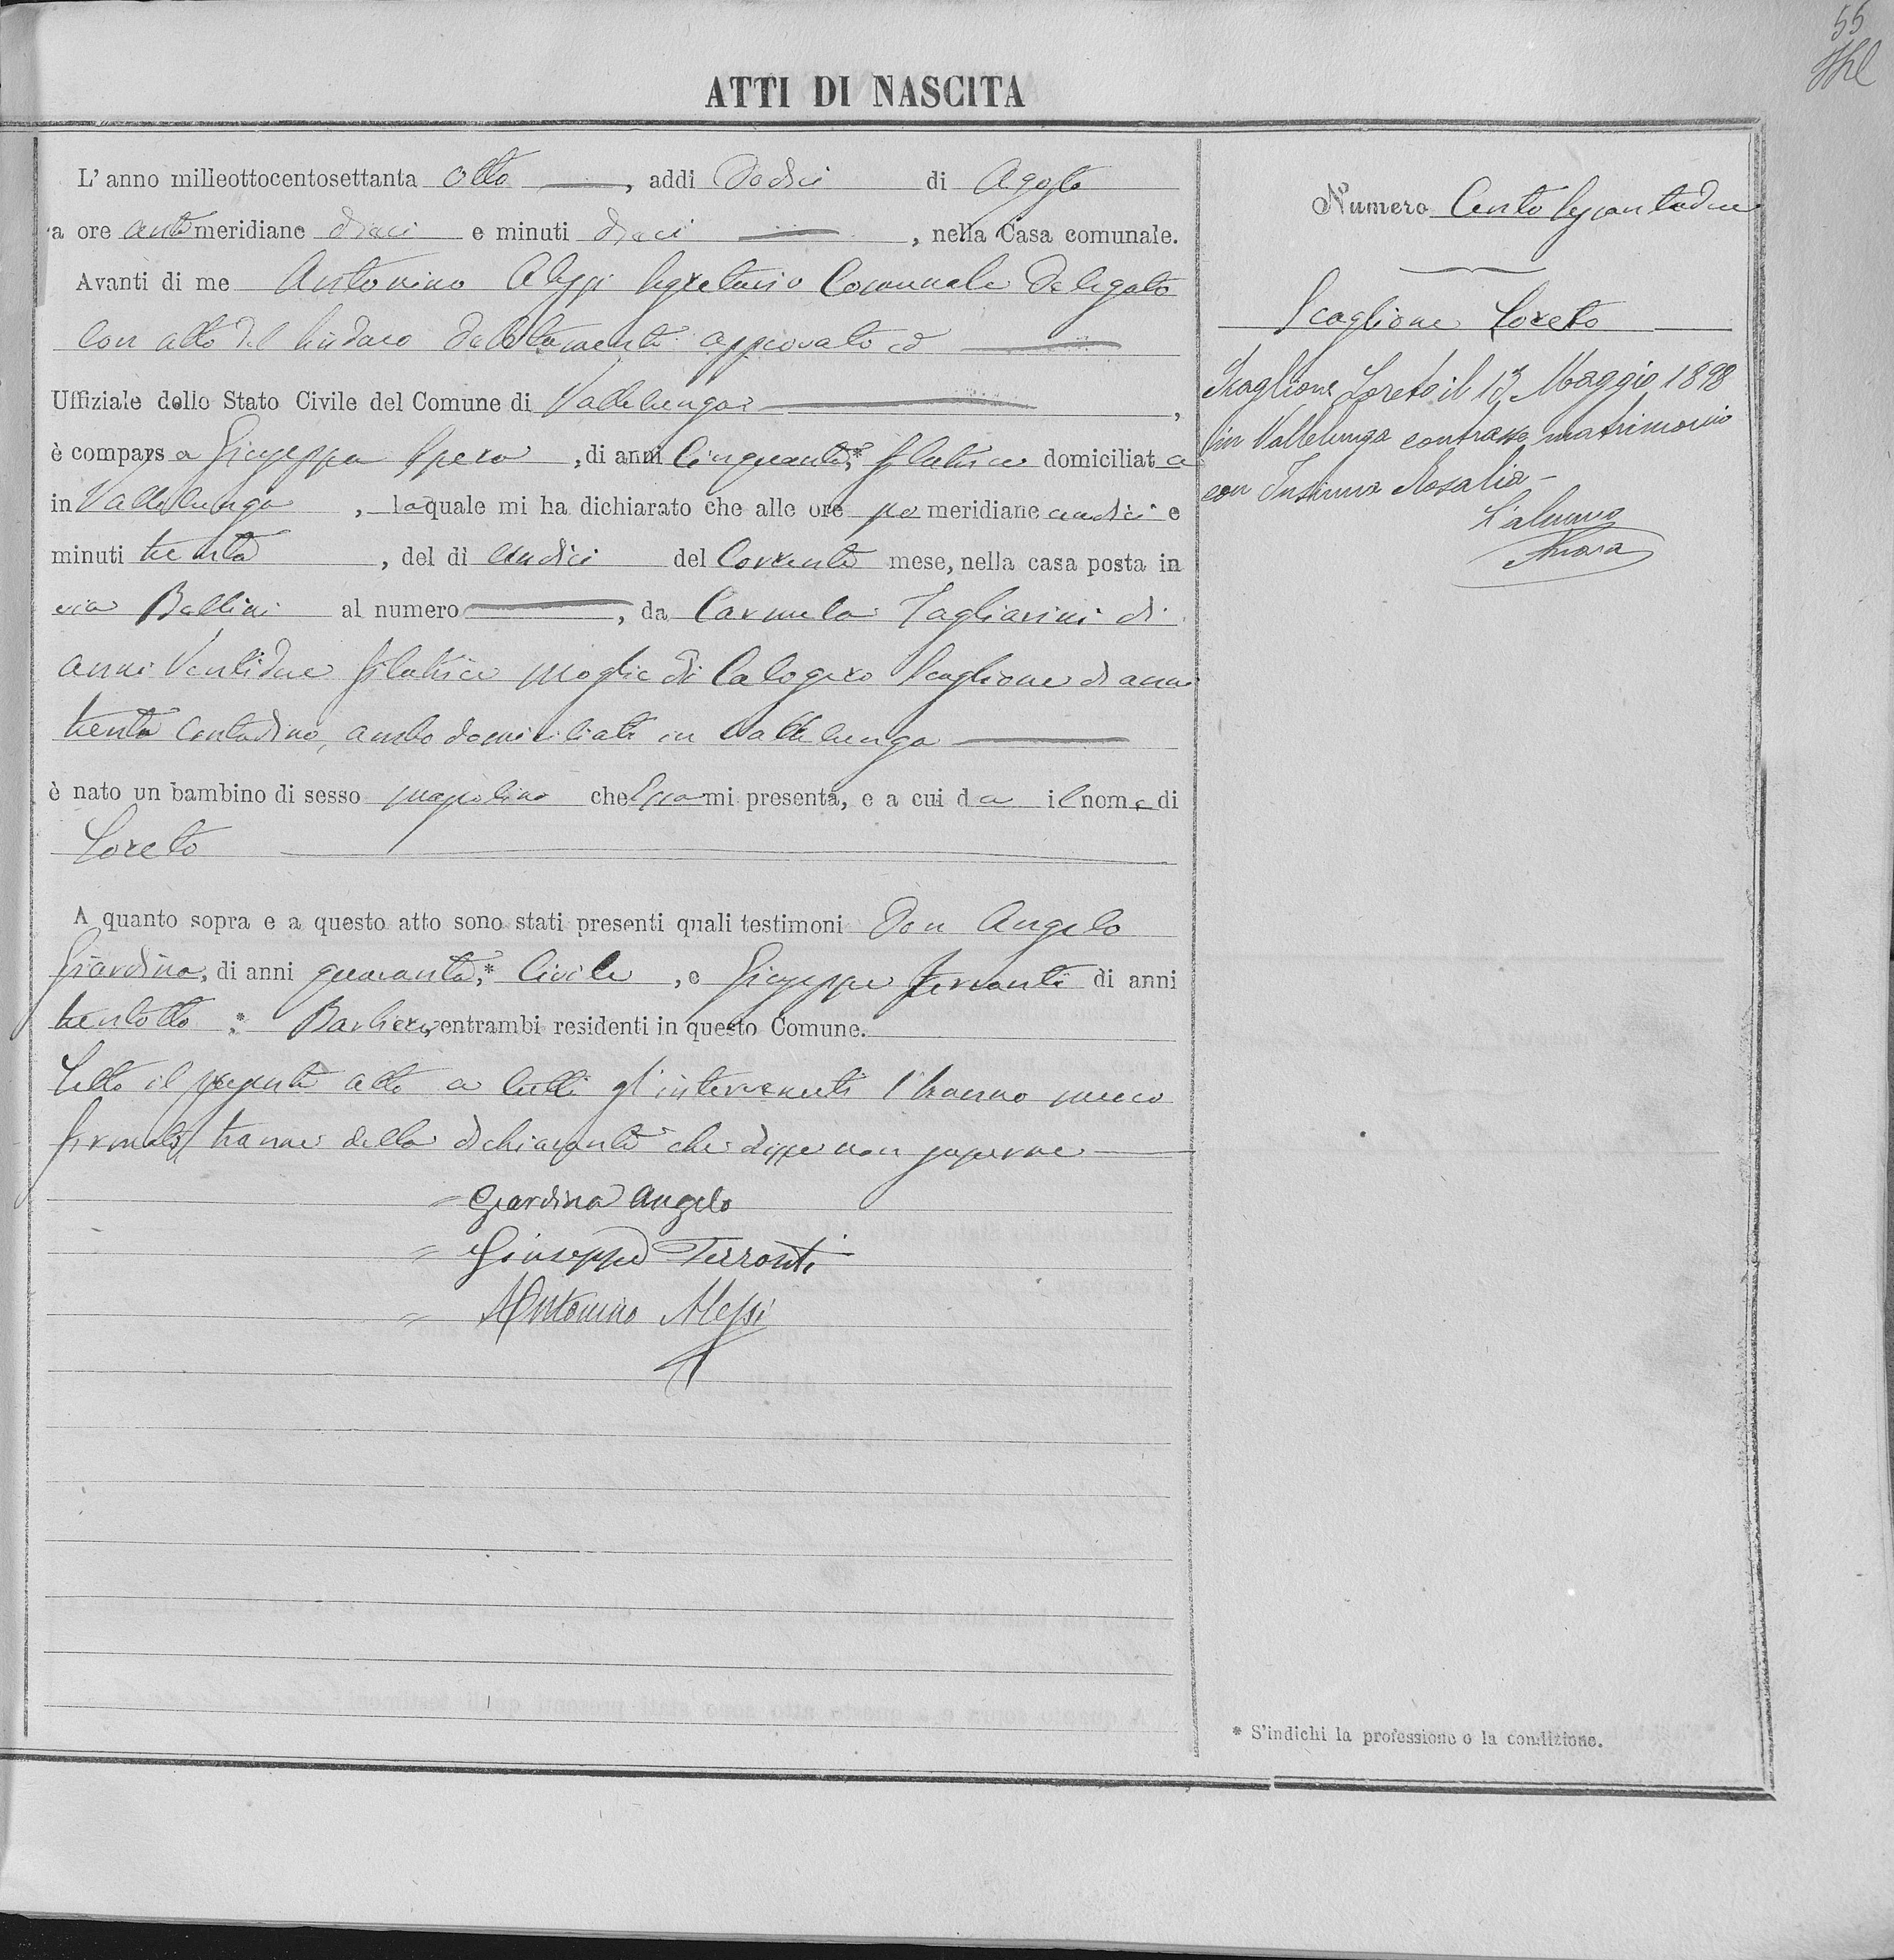 55
ATTI DI NASCITA
L'anno milleottocentosettanta otto, addi Dodici di Agosto
a ore antimeridiane dieci e minuti dieci, nella Casa comunale.
Avanti di me Antonino Alessi Segretario Comunale Delegato
con atto del Sindaco debitamente approvato ed
Uffiziale dello Stato Civile del Comune di Vallelunga,
è comparsa Giuseppa Spera, di anni Cinquanta,* filatrice domiciliata
in Vallelunga, laquale mi ha dichiarato che alle ore po meridiane undici e
minuti trenta, del di undici del Corrente mese, nella casa posta in
via Bellini al numero, da Carmela Tagliarini di
anni Ventidue filatrice moglie di Calogero Scaglione di anni
trenta Contadino, ambo domiciliati in Vallelunga
è nato un bambino di sesso mascolino che Essa mi presenta, e a cui da il nome di
Loreto
A quanto sopra e a questo atto sono stati presenti quali testimoni Don Angelo
Giardina, di anni quaranta,* Civile, e Giuseppe Terranti di anni
trentotto,* Barbiere, entrambi residenti in questo Comune.
Letto il presente atto a tutti gl'intervenuti l'hanno meco
firmato, tranne della dichiarante che disse non saperne
Giardina Angelo
Giuseppe Terronti
Antonino Alessi
Numero Cento Sessantadue
Scaglione Loreto
Scaglione Loreto il 13 Maggio 1898
in Vallelunga contrasse matrimonio
con Insinna Rosalia-
* S'indichi la professione o la condizione.